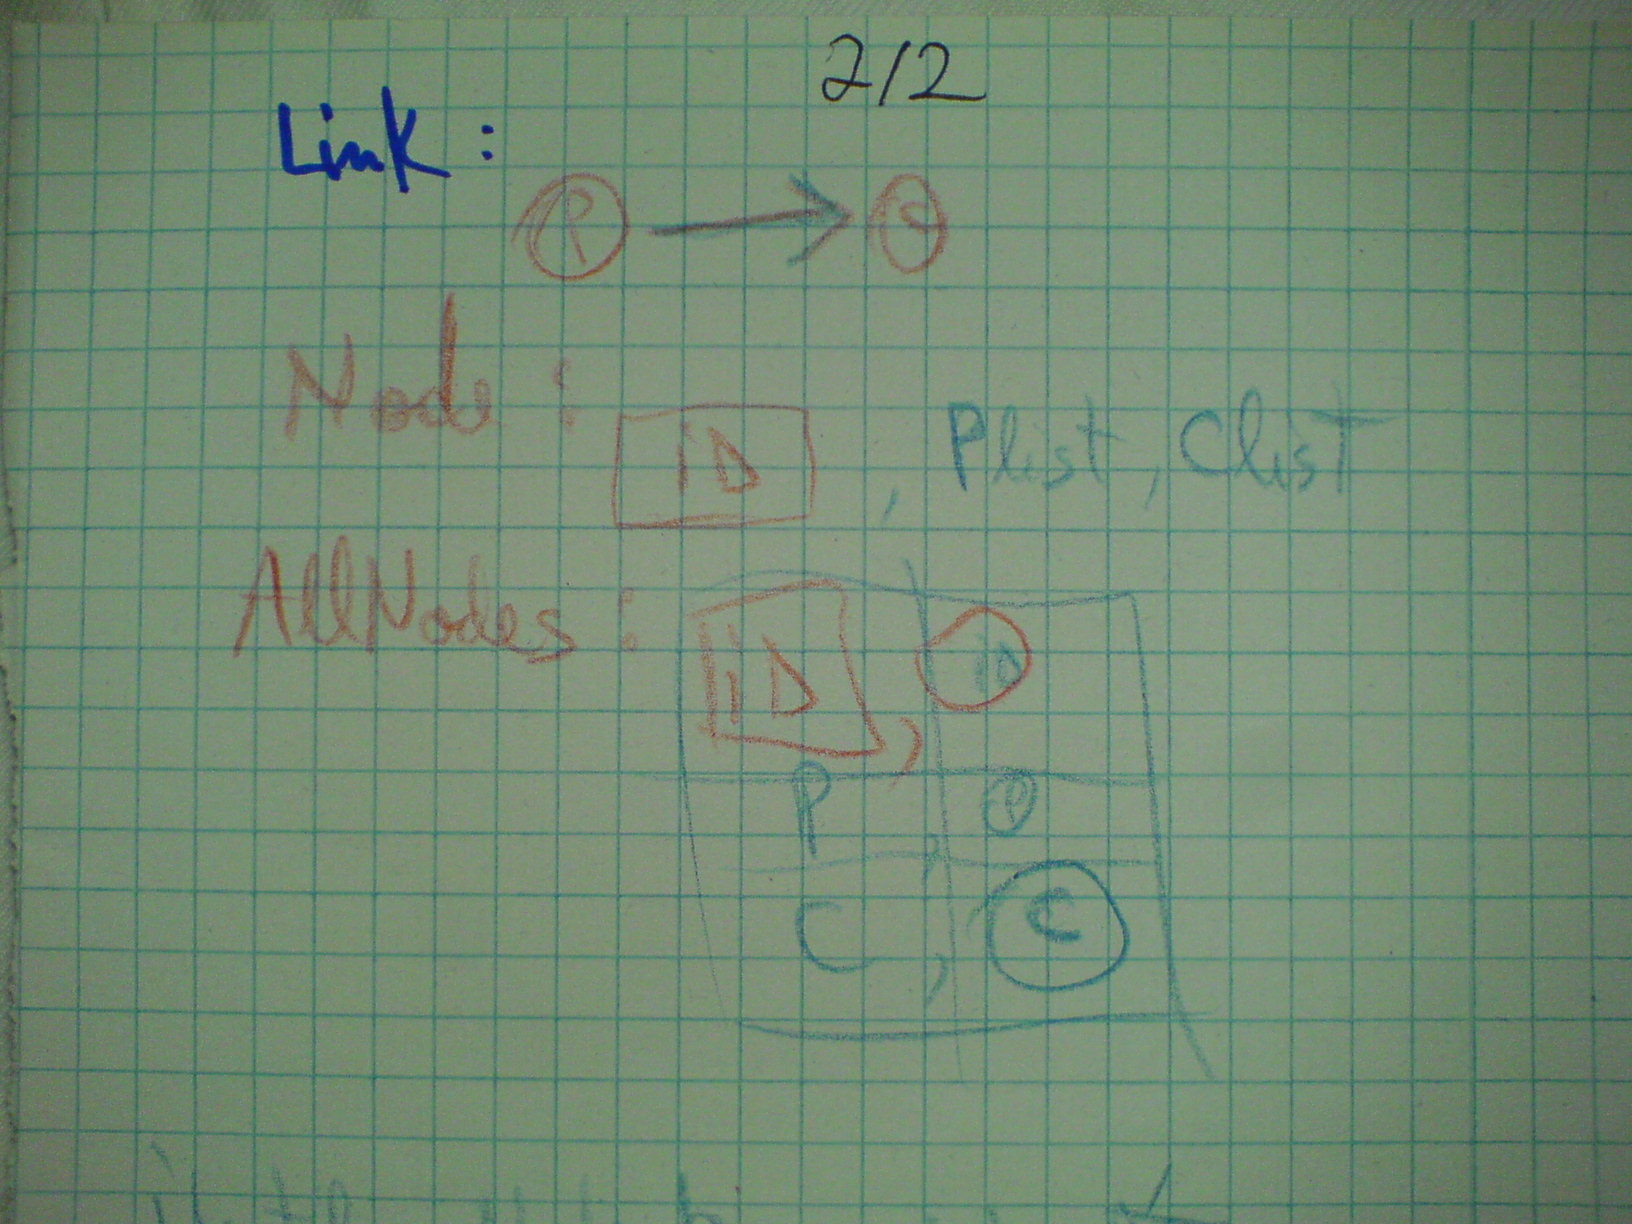 2/2
Link :
P → C
Node : iD , Plist , Clist
AllNodes : iD , iD
P , P
C , C